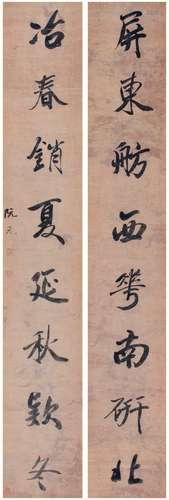 屏東舫西花南研北
冶春銷夏延秋款冬
阮元